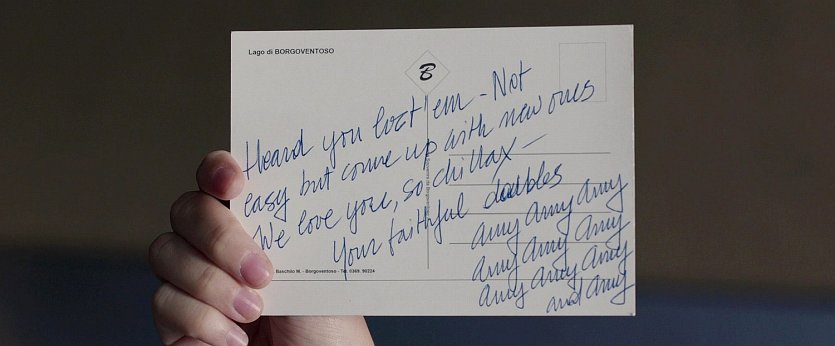 Lago di BORGOVENTOSO
B
Heard you lost 'em - Not
easy but come up with new ones
We love you, so chillax -
Your faithful doubles
amy amy amy
amy amy amy
amy amy amy
and amy
Baschilo M. - Borgoventoso - Tel. 0369. 90224